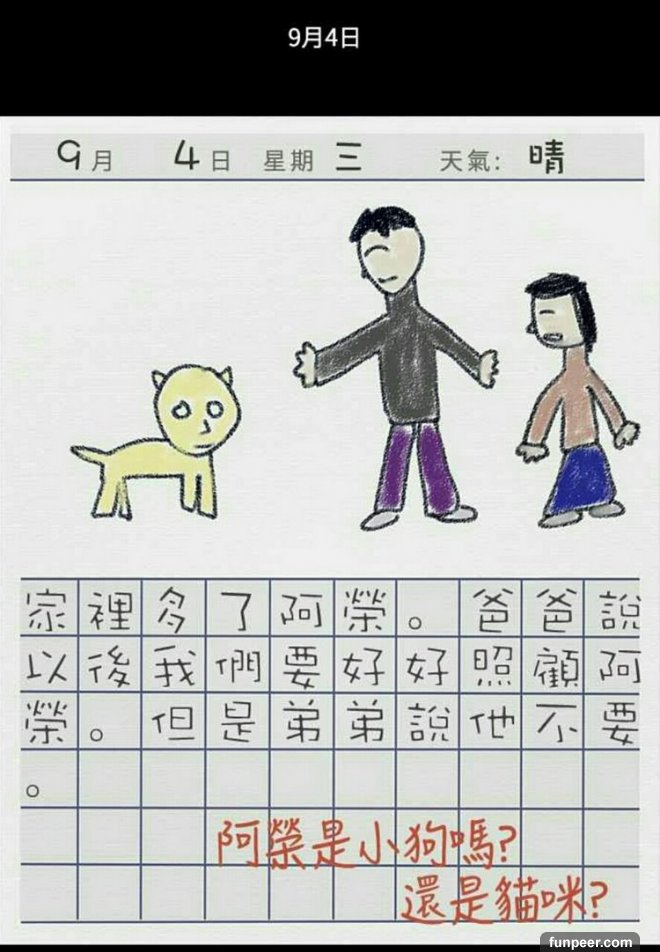 9月4日
9月 4日 星期 三 天氣: 晴
家裡多了阿榮。爸爸說
以後我們要好好照顧阿
榮。但是弟弟說他不要
。
阿榮是小狗嗎?
還是貓咪?
funpeer.com